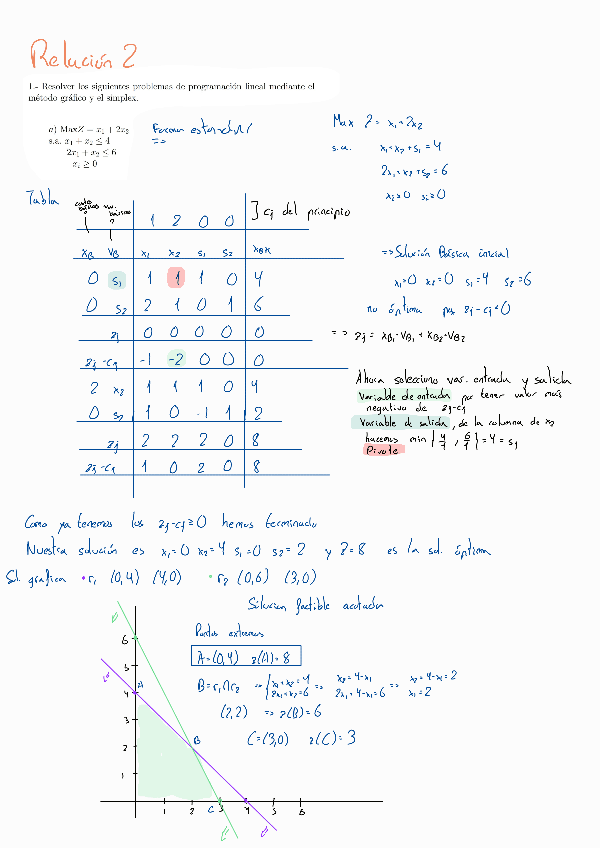 Relación 2
1.- Resolver los siguientes problemas de programación lineal mediante el
método gráfico y el simplex.
a) MaxZ = x₁ + 2x₂
s.a. x₁ + x₂ ≤ 4
2x₁ + x₂ ≤ 6
xᵢ ≥ 0
Forma estandar
=>
Max Z = x₁+2x₂
s.a. x₁+x₂+s₁ = 4
2x₁+x₂+s₂ = 6
xᵢ≥0 sᵢ≥0
Tabla
1 2 0 0 ] cj del principio
xB VB x₁ x₂ s₁ s₂ xBx
0 s₁ 1 1 1 0 4
0 s₂ 2 1 0 1 6
zj 0 0 0 0 0
zj-cj -1 -2 0 0 0
2 x₂ 1 1 1 0 4
0 s₂ 1 0 -1 1 2
zj 2 2 2 0 8
zj-cj 1 0 2 0 8
=> Solución Básica inicial
x₁=0 x₂=0 s₁=4 s₂=6
no óptima pq zj-cj<0
=> zj = xB₁·VB₁ + xB₂·VB₂
Ahora selecciono var. entrada y salida
Variable de entrada por tener valor más
negativo de zj-cj
Variable de salida, de la columna de x₂
hacemos min {4/1, 6/1} = 4 = s₁
Pivote
Como ya tenemos los zj-cj≥0 hemos terminado
Nuestra solución es x₁=0 x₂=4 s₁=0 s₂=2 y Z=8 es la sol. óptima
Sol. gráfica • r₁ (0,4) (4,0) • r₂ (0,6) (3,0)
Solucion factible acotada
Puntos extremos
A=(0,4) z(A)=8
B=r₁∩r₂ => { x₁+x₂=4 2x₁+x₂=6 => x₂=4-x₁ 2x₁+4-x₁=6 => x₂=4-x₁=2 x₁=2
(2,2) => z(B)=6
C=(3,0) z(C)=3
6
5
4 A
3
2 B
1
1 2 C 3 4 5 6